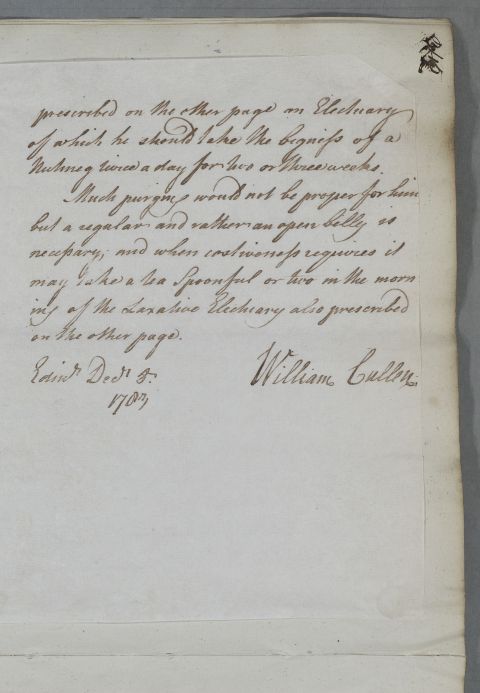 prescribed on the other page an Electuary
of which he should take the bigness of a
Nutmeg twice a day for two or three weeks.
Much purging would not be proper for him
but a regular and rather an open belly is
necessary; and when costiveness requires it
may take a tea Spoonful or two in the morn
ing of the Laxative Electuary also prescribed
on the other page.
Edinr. Decr. 8. William Cullen.
1783